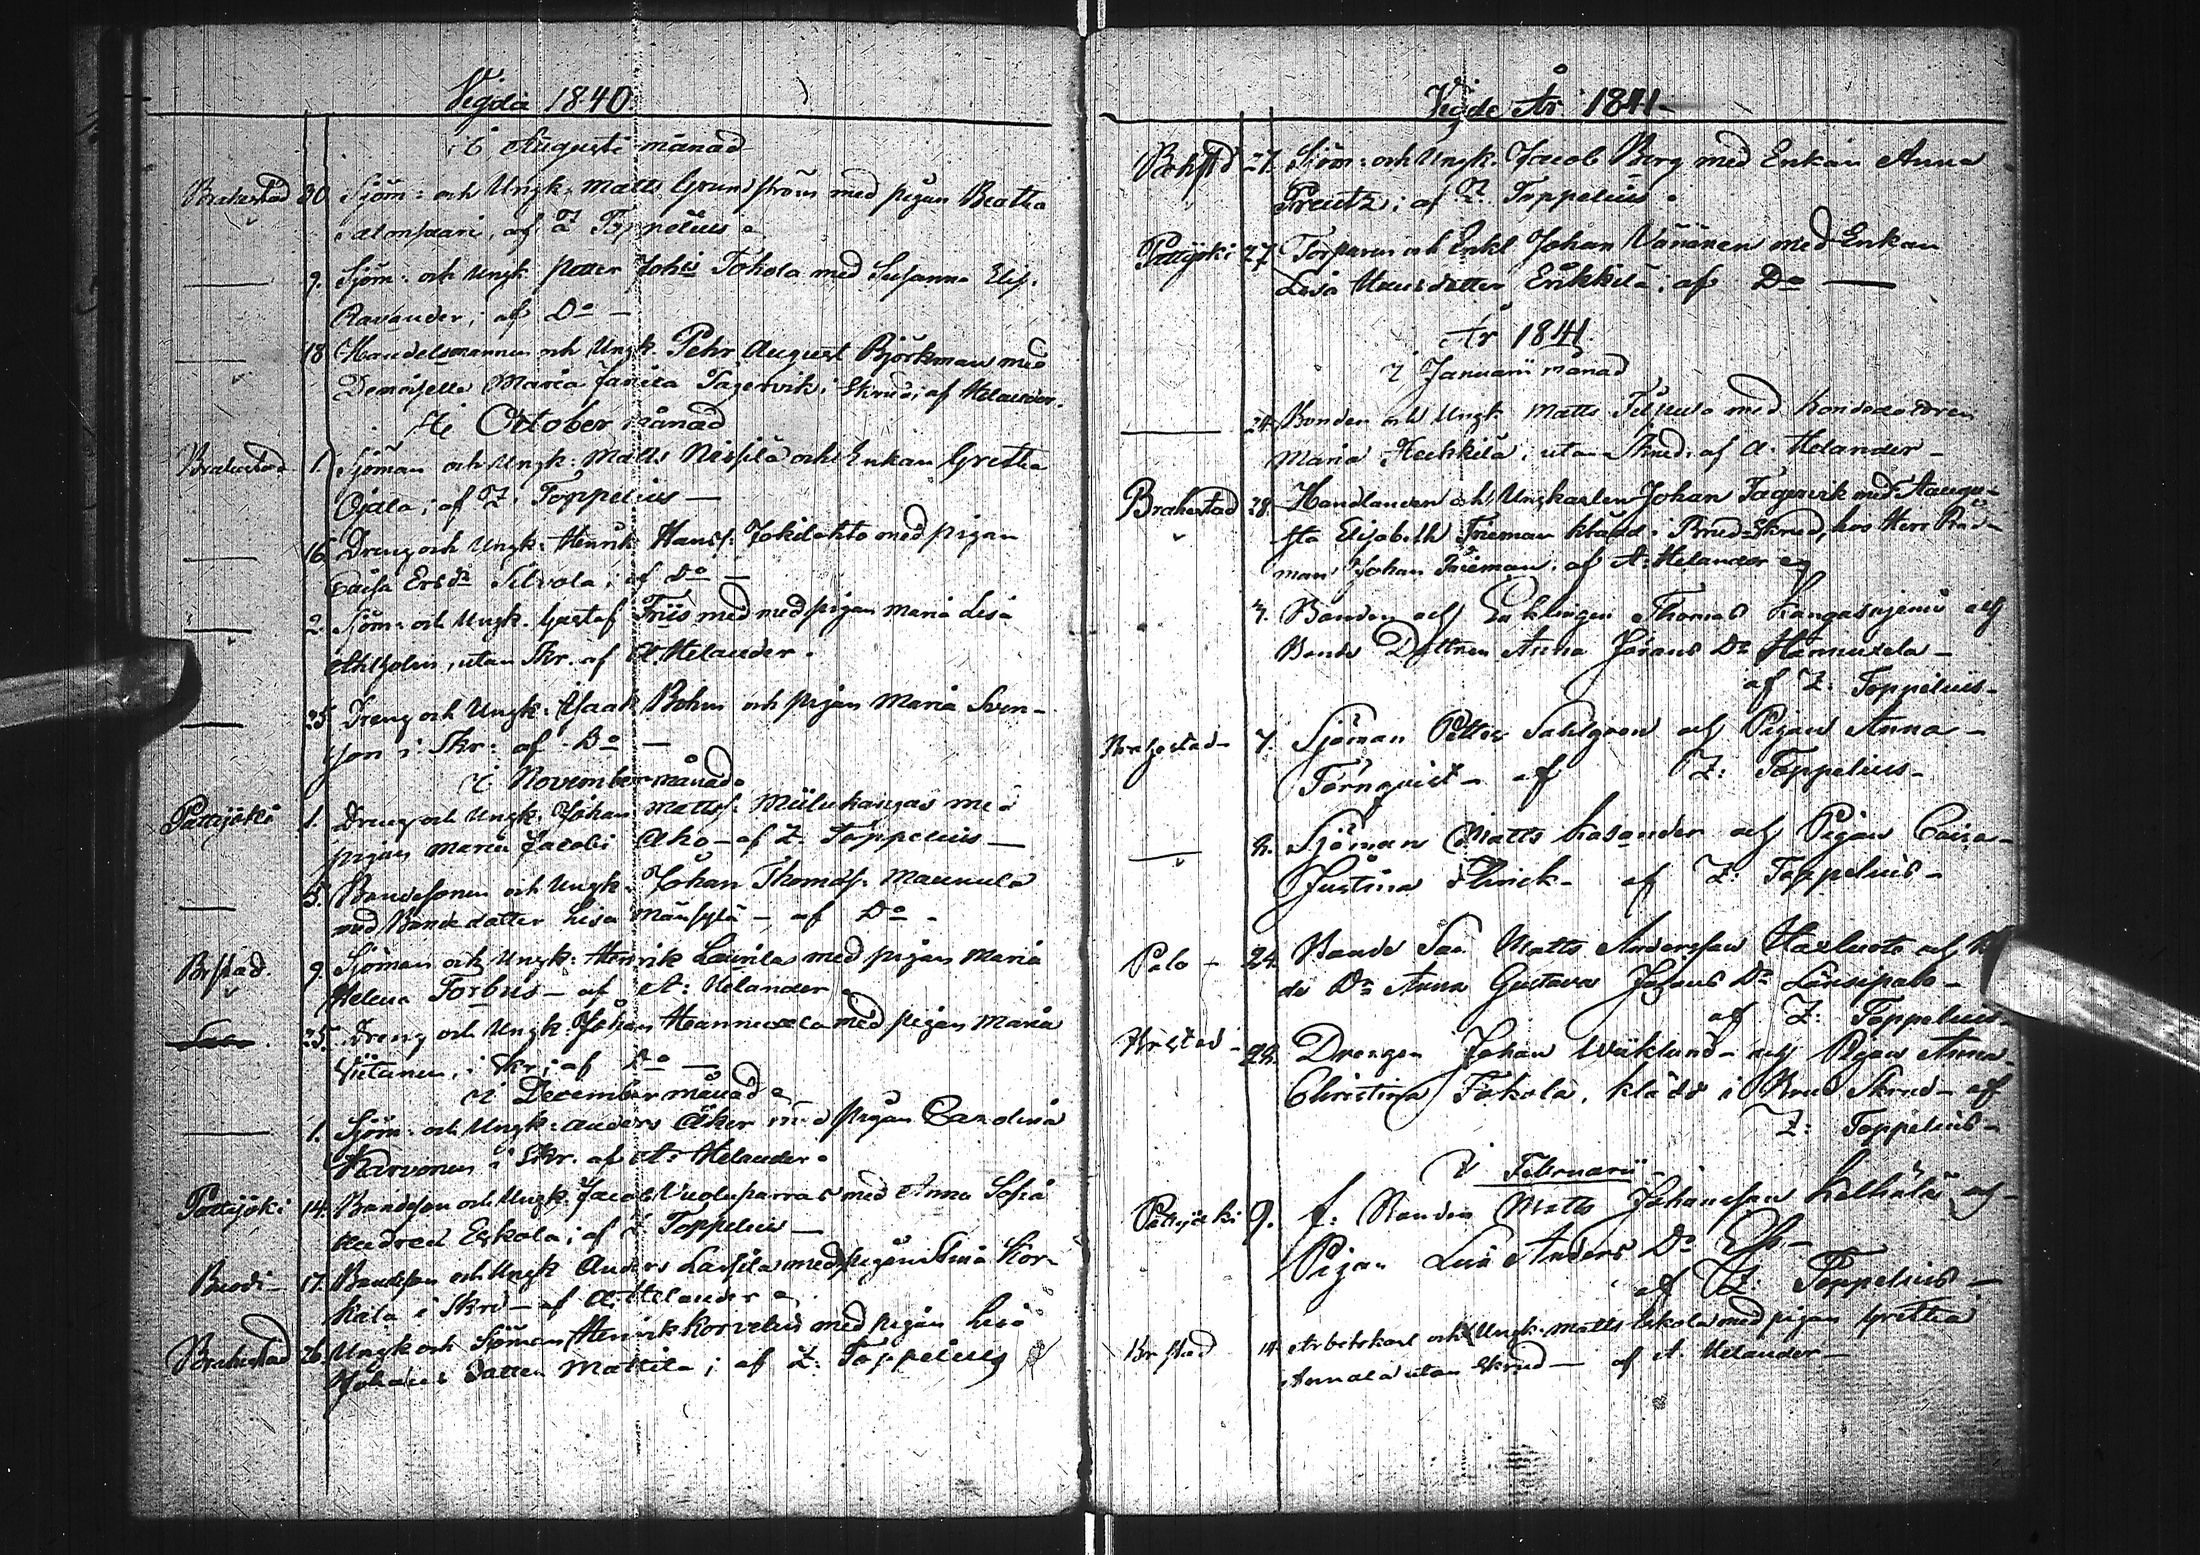 Vigda 1840.
i Augusti månad
Brahestad 30. Sjöm: och Ungk. Matts Grundström med pigan Beatha
Salonsaari, af Z Toppelius
— 9. Sjöm: och Ungk. Petter Johs Tokola med Susanna Elis.
Ravander; af Do —
— 18. Handelsmannen och Ungk. Pehr August Björkman med
Demoiselle Maria Fagervik; i Skrud; af Helander.
i October månad
Brahestad 1. Sjöman och Ungk: Matts Nissilä och Enkan Gretha
Ojala; af Z: Toppelius —
— 16. Dreng och Ungk: Henrik Hanss: Jokilehto med pigan
Caisa Ersdr Silvola; af Do —
— 2. Sjöm: och Ungk. Gustaf Friis med med pigan Maria Lisa
Ahlholm, utan Skr. af A. Helander.
— 25. Dreng och Ungk: Isaak Bohm och pigan Maria Sven-
son i Skr: af Do —
i November månad
Pattijoki 1. Dreng och Ungk. Johan Mattss: Miilukangas med
pigan Maria Jacobs Aho — af Z. Toppelius —
— 5. Bondesonen och Ungk. Johan Thomass. Maunula
med Bondedotter Lisa — af Do —
Brstad. 9. Sjöman och Ungk: Henrik Laurila med pigan Maria
Helena Forbus — af A: Helander
25. Dreng och Ungk. Johan Hannuxela med pigan Maria
i Skr; af Do —
i December månad
— 1. Sjöm: och Ungk: Anders Åker med pigan Carolina
Karvonen i Skr. af A: Helander.
Pattijoki 14. Bondeson och Ungk: Jacob Vuoluparras med Anna Sofia
Eskola; af Z Toppelius —
17. Bondeson och Ungk Anders Lassila med pigan Kor-
kala i Skrd — af A: Helander
Brahestad 26. Ungk och Sjöman Henrik Korvelus med pigan Lisa
Johans Dotter Mattila; af Z: Toppelius
Vigde År 1841 —
Brhstd 27. Sjöm: och Ungk. Jacob Berg med Enkan Anna
Preutz; af Z. Toppelius.
Pattijoki 27. Torparen och Enkl. Johan Vänänen med Enkan
Lisa Hansdotter Erikkilä; af Do —
År 1841.
i Januarii månad
— 24. Bonden och Ungk. Matts med bondedottren
Maria Heikkilä; utan Skrud. af A. Helander —
Brahestad 28. Handlanden och Ungkarlen Johan Fagervik med Augu-
sta Elisabeth Frieman klädd i Brud-Skrud, hos Herr Råd-
man Johan Frieman. af A: Helander
3. Bonden och Enklingen Thomas Kangasniemi och
Bonde Dottren Anna Johans Dr Hannuxela —
af Z: Toppelius —
Brahestad — 7. Sjöman Petter Sahlgren och Pigan Anna —
Törnquist — af Z: Toppelius —
— Sjöman Matts Kasander och Pigan Caisa —
Justina Flinck — af Z: Toppelius —
Palo — 24. Bonde Son Matts Andersson och
de Dr Anna Gustava Johans Dr Länsipalo —
af Z: Toppelius —
Brestad — Drengen Johan Wäklund — och Pigan Anna
Christina Tokola, klädd i Brud Skrud — af
Z: Toppelius —
i Februarii —
Pattijoki 9. f: Bonden Matts Johansson och —
Pigan Lisa Anders Dr —
af Z: Toppelius —
Brstad 14. Arbetskarl och Ungk. Matts Eskola med pigan Gretha
Annala utan Skrud — af A Helander —